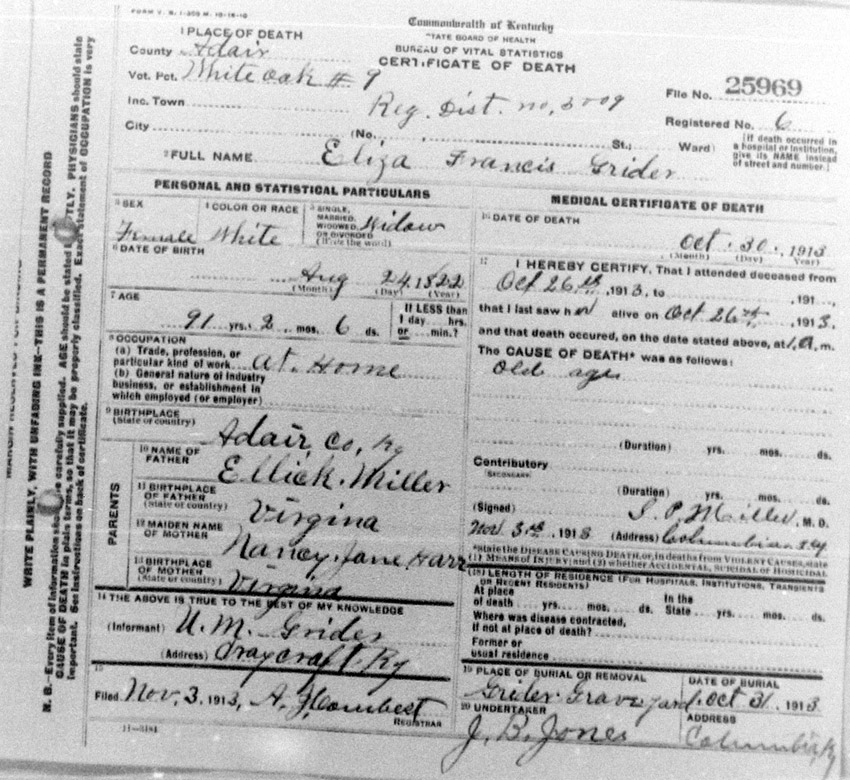 FORM V. S. 1-
Commonwealth of Kentucky
STATE BOARD OF HEALTH
BUREAU OF VITAL STATISTICS
CERTIFICATE OF DEATH
1 PLACE OF DEATH
County Adair
Vot. Pct. White oak # 9
Inc. Town
Reg. Dist. no, 5009
File No. 25969
Registered No. 6
City (No. St.; Ward)
[If death occurred in a hospital or institution, give its NAME instead of street and number.]
2 FULL NAME Eliza Francis Grider
PERSONAL AND STATISTICAL PARTICULARS
3 SEX Female
4 COLOR OR RACE White
5 SINGLE, MARRIED, WIDOWED, OR DIVORCED (Write the word) Widow
6 DATE OF BIRTH
Aug 24, 1822
(Month) (Day) (Year)
7 AGE
91 yrs. 2 mos. 6 ds.
If LESS than 1 day hrs. or min.?
8 OCCUPATION
(a) Trade, profession, or particular kind of work at. Home
(b) General nature of industry business, or establishment in which employed (or employer)
9 BIRTHPLACE (State or country) Adair, co, Ky
PARENTS
10 NAME OF FATHER Ellick. Miller
11 BIRTHPLACE OF FATHER (State or country) Virgina
12 MAIDEN NAME OF MOTHER Nancy. Jane Harr
13 BIRTHPLACE OF MOTHER (State or country) Virgina
14 THE ABOVE IS TRUE TO THE BEST OF MY KNOWLEDGE
(Informant) U. M. Grider
(Address) Craycraft. Ky
15
Filed Nov, 3, 1913, A. J. Combest
REGISTRAR
MEDICAL CERTIFICATE OF DEATH
16 DATE OF DEATH
Oct. 30, 1913
(Month) (Day) (Year)
17 I HEREBY CERTIFY, That I attended deceased from
Oct 26th, 1913, to , 191
that I last saw her alive on Oct 26th, 1913,
and that death occured, on the date stated above, at 1, a, m.
The CAUSE OF DEATH* was as follows:
Old age
(Duration) yrs. mos. ds.
Contributory
SECONDARY
(Duration) yrs. mos. ds.
(Signed) P Miller, M. D.
Nov 3rd, 1913 (Address) Columbia Ky
*State the DISEASE CAUSING DEATH, or, in deaths from VIOLENT CAUSES, state
(1) MEANS OF INJURY; and (2) whether ACCIDENTAL, SUICIDAL OR HOMICIDAL
(18) LENGTH OF RESIDENCE (FOR HOSPITALS, INSTITUTIONS, TRANSIENTS OR RECENT RESIDENTS)
At place of death yrs. mos. ds. In the State yrs. mos. ds.
Where was disease contracted, if not at place of death?
Former or usual residence
19 PLACE OF BURIAL OR REMOVAL Grider Graveyard.
DATE OF BURIAL Oct 31, 1913
20 UNDERTAKER J. B. Jones
ADDRESS Columbia, Ky
11-3184
WRITE PLAINLY, WITH UNFADING INK—THIS IS A PERMANENT RECORD
N. B.—Every item of information should be carefully supplied. AGE should be stated EXACTLY. PHYSICIANS should state
CAUSE OF DEATH in plain terms, so that it may be properly classified. Exact statement of OCCUPATION is very
important. See instructions on back of certificate.